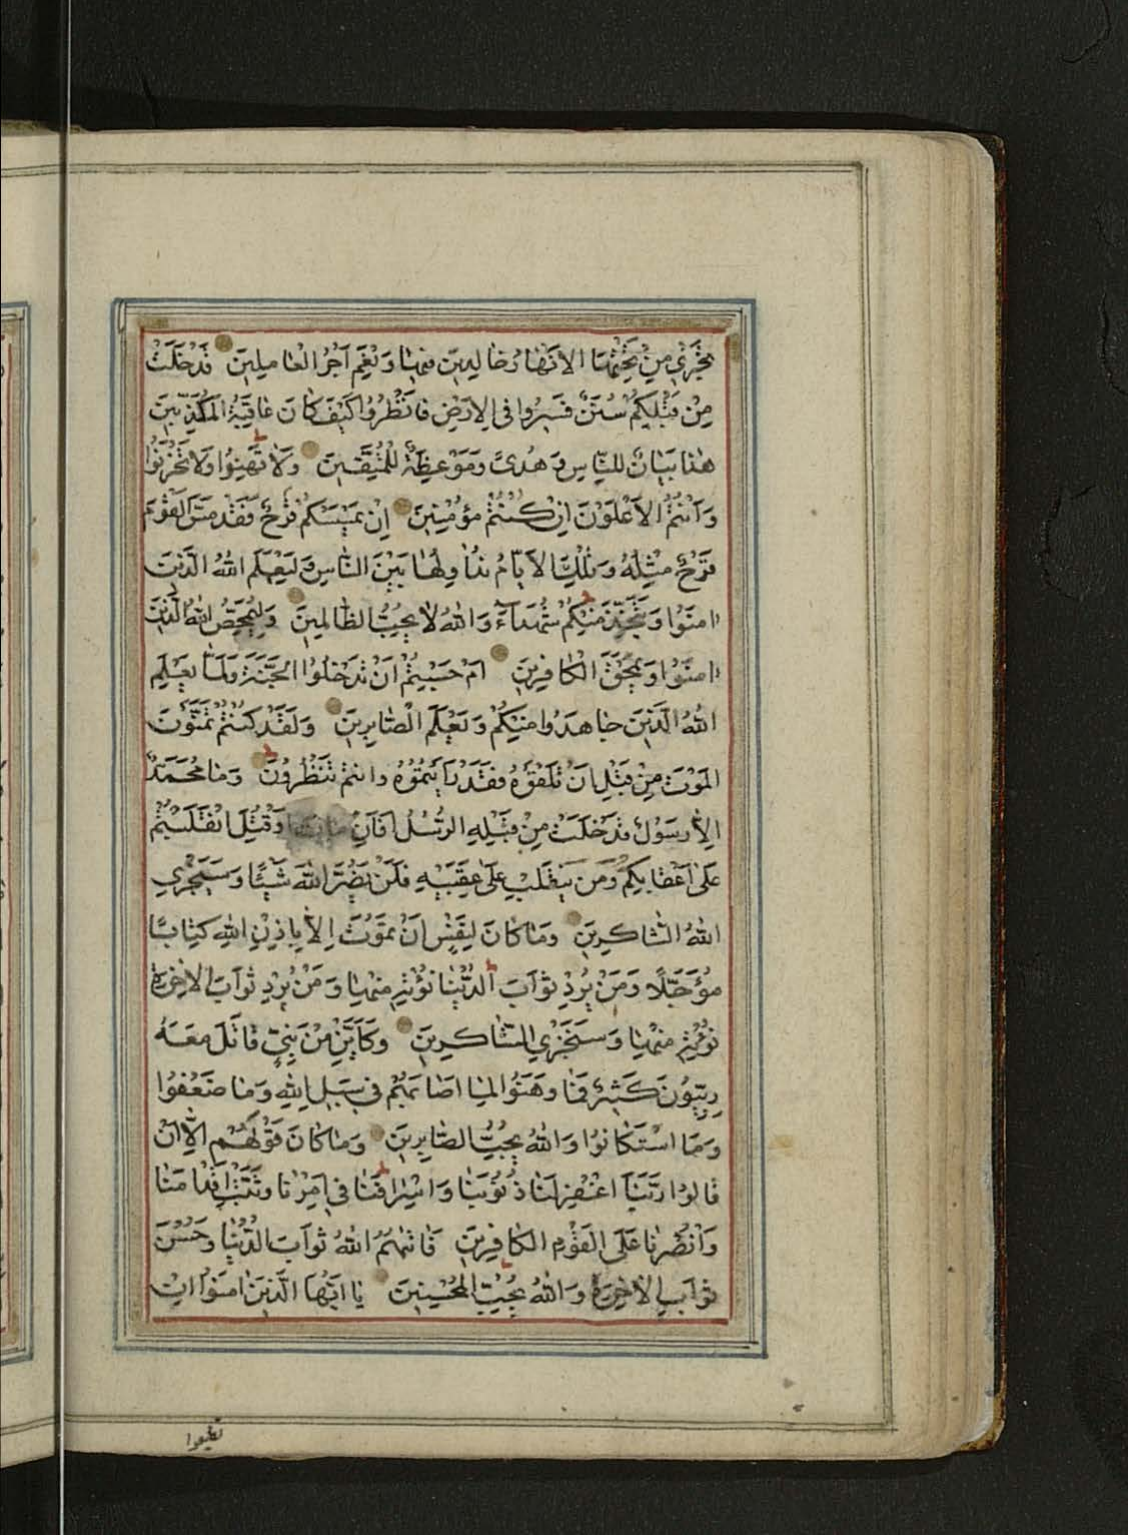 تَجْرِي مِنْ تَحْتِهَا الْاَنْهَارُ خَالِدِينَ فِيهَا وَنِعْمَ اَجْرُ الْعَامِلِينَ قَدْ خَلَتْ
مِنْ قَبْلِكُمْ سُنَنٌ فَسِيرُوا فِي الْاَرْضِ فَانْظُرُوا كَيْفَ كَانَ عَاقِبَةُ الْمُكَذِّبِينَ
هٰذَا بَيَانٌ لِلنَّاسِ وَهُدىً وَمَوْعِظَةٌ لِلْمُتَّقِينَ وَلَا تَهِنُوا وَلَا تَحْزَنُوا
وَاَنْتُمُ الْاَعْلَوْنَ اِنْ كُنْتُمْ مُؤْمِنِينَ اِنْ يَمْسَسْكُمْ قَرْحٌ فَقَدْ مَسَّ الْقَوْمَ
قَرْحٌ مِثْلُهُ وَتِلْكَ الْاَيَّامُ نُدَاوِلُهَا بَيْنَ النَّاسِ وَلِيَعْلَمَ اللّٰهُ الَّذِينَ
اٰمَنُوا وَيَتَّخِذَ مِنْكُمْ شُهَدَآءَ وَاللّٰهُ لَا يُحِبُّ الظَّالِمِينَ وَلِيُمَحِّصَ اللّٰهُ الَّذِينَ
اٰمَنُوا وَيَمْحَقَ الْكَافِرِينَ اَمْ حَسِبْتُمْ اَنْ تَدْخُلُوا الْجَنَّةَ وَلَمَّا يَعْلَمِ
اللّٰهُ الَّذِينَ جَاهَدُوا مِنْكُمْ وَيَعْلَمَ الصَّابِرِينَ وَلَقَدْ كُنْتُمْ تَمَنَّوْنَ
الْمَوْتَ مِنْ قَبْلِ اَنْ تَلْقَوْهُ فَقَدْ رَاَيْتُمُوهُ وَاَنْتُمْ تَنْظُرُونَ وَمَا مُحَمَّدٌ
اِلَّا رَسُولٌ قَدْ خَلَتْ مِنْ قَبْلِهِ الرُّسُلُ اَفَاِنْ مَاتَ اَوْ قُتِلَ انْقَلَبْتُمْ
عَلٰى اَعْقَابِكُمْ وَمَنْ يَنْقَلِبْ عَلٰى عَقِبَيْهِ فَلَنْ يَضُرَّ اللّٰهَ شَيْئًا وَسَيَجْزِي
اللّٰهُ الشَّاكِرِينَ وَمَا كَانَ لِنَفْسٍ اَنْ تَمُوتَ اِلَّا بِاِذْنِ اللّٰهِ كِتَابًا
مُؤَجَّلًا وَمَنْ يُرِدْ ثَوَابَ الدُّنْيَا نُؤْتِهِ مِنْهَا وَمَنْ يُرِدْ ثَوَابَ الْاٰخِرَةِ
نُؤْتِهِ مِنْهَا وَسَنَجْزِي الشَّاكِرِينَ وَكَاَيِّنْ مِنْ نَبِيٍّ قَاتَلَ مَعَهُ
رِبِّيُّونَ كَثِيرٌ فَمَا وَهَنُوا لِمَا اَصَابَهُمْ فِي سَبِيلِ اللّٰهِ وَمَا ضَعُفُوا
وَمَا اسْتَكَانُوا وَاللّٰهُ يُحِبُّ الصَّابِرِينَ وَمَا كَانَ قَوْلَهُمْ اِلَّا اَنْ
قَالُوا رَبَّنَا اغْفِرْ لَنَا ذُنُوبَنَا وَاِسْرَافَنَا فِي اَمْرِنَا وَثَبِّتْ اَقْدَامَنَا
وَانْصُرْنَا عَلَى الْقَوْمِ الْكَافِرِينَ فَاٰتٰيهُمُ اللّٰهُ ثَوَابَ الدُّنْيَا وَحُسْنَ
ثَوَابِ الْاٰخِرَةِ وَاللّٰهُ يُحِبُّ الْمُحْسِنِينَ يَا اَيُّهَا الَّذِينَ اٰمَنُوا اِنْ
تطيعوا